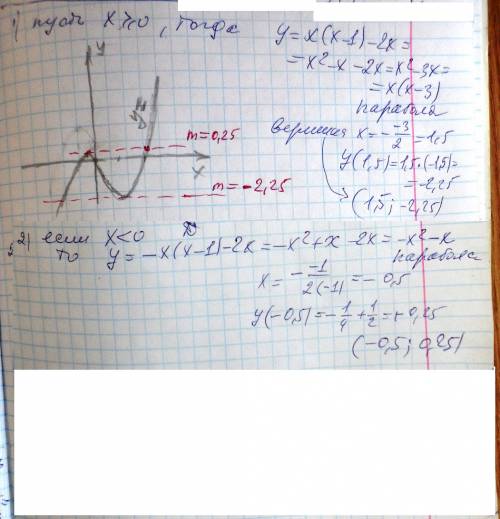 1) пусть x ⩾ 0, тогда
y = x(x-1) - 2x =
= x² - x - 2x = x² - 3x =
= x(x-3)
парабола
вершина x = - -3/2 = 1,5
y(1,5) = 1,5·(-1,5) =
= -2,25
(1,5; -2,25)
y
m=0,25
x
m=-2,25
2) если x<0
то y = -x(x-1)-2x = -x²+x-2x = -x²-x
парабола
x = - -1/2(-1) = -0,5
y(-0,5) = -1/4 + 1/2 = + 0,25
(-0,5; 0,25)